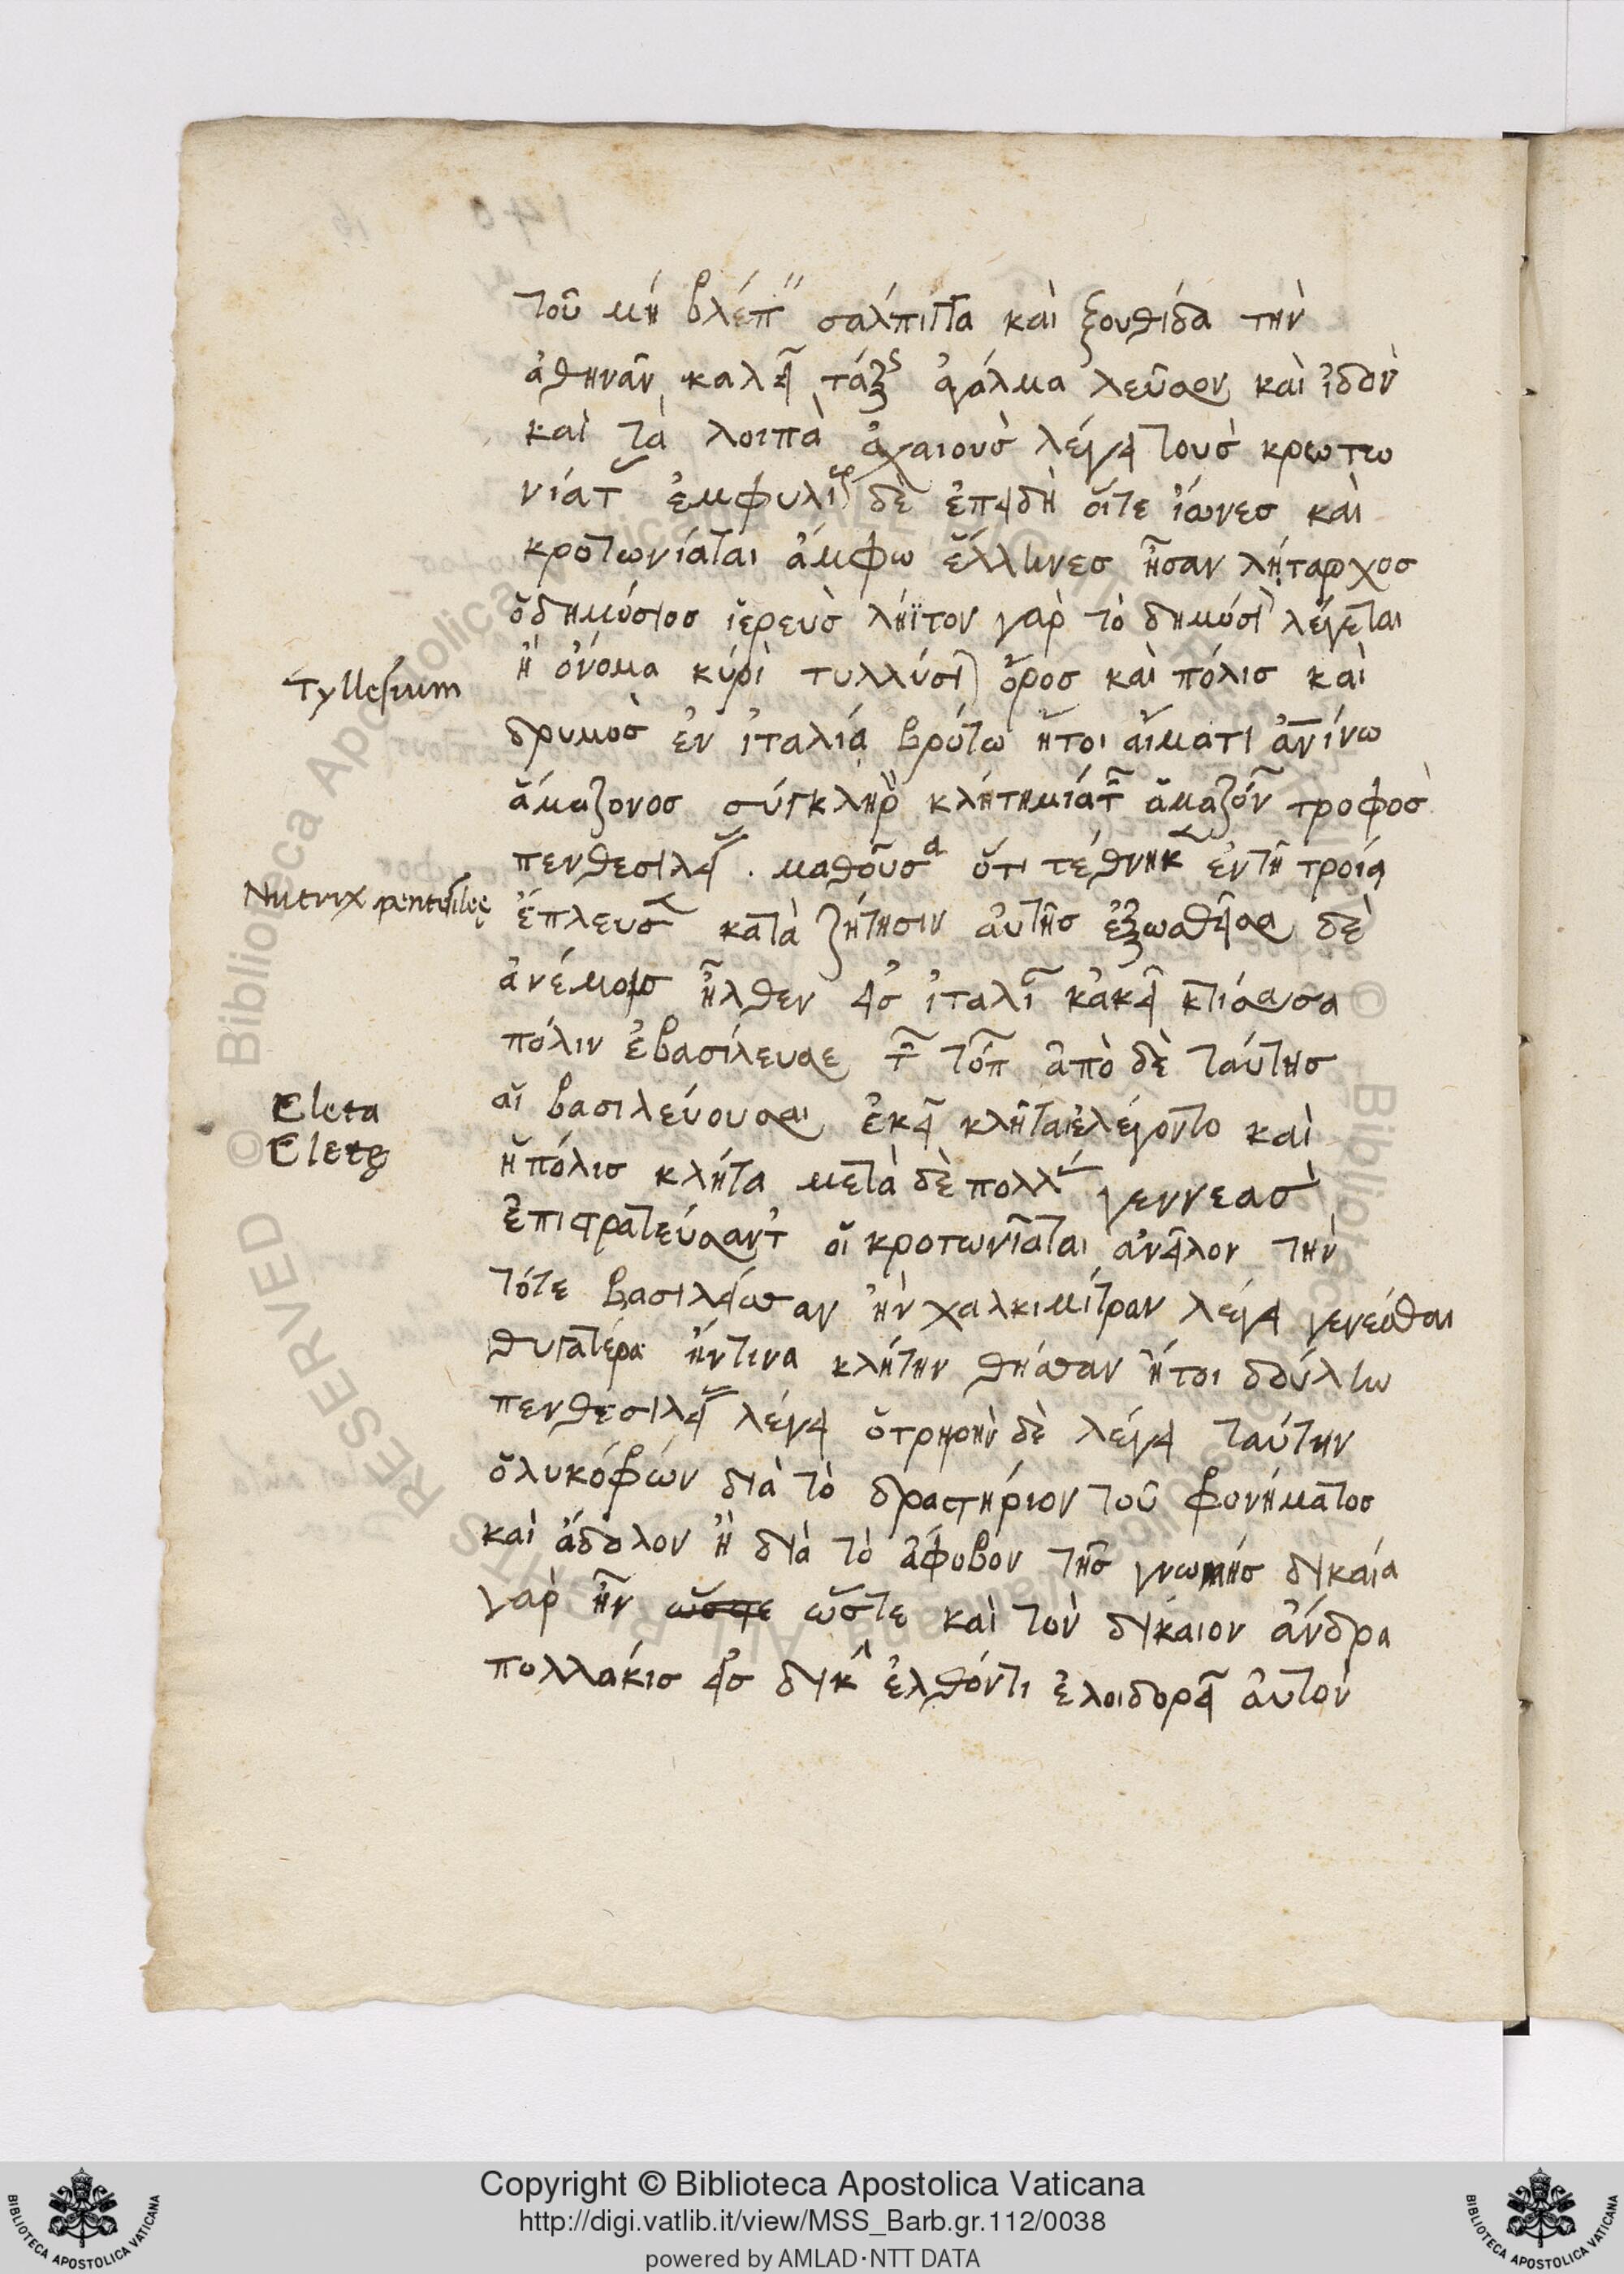 τοῦ μὴ βλέπειν σάλπιγγα καὶ ξουθίδα τὴν
ἀθηνᾶν καλεῖ τάξις ἄγαλμα λεῦσον καὶ ἰδὸν
καὶ τὰ λοιπὰ ἀχαιοὺσ λέγει τοὺσ κρωτω
νιάτας ἐμφύλιον δὲ ἐπειδὴ οἵτε ἰώνεσ καὶ
κροτωνίαται ἄμφω ἕλληνεσ ἦσαν λήταρχοσ
ὁ δημόσιοσ ἱερεὺσ λήϊτον γαρ τὸ δημόσιον λέγεται
ἢ ὄνομα κύριον τυλλύσιον ὄροσ καὶ πόλισ καὶ
δρυμὸσ ἐν ἰταλίᾳ βρότω ἤτοι αἵματι
ἀμάζονοσ σύγκληρον ἀμαζόνος τροφὸσ
πενθεσιλείας . μαθοῦσα ὅτι τέθνηκεν ἐν τῆ τροίᾳ
ἔπλευσεν κατὰ ζήτησιν ἀυτῆσ ἐξωσθεῖσα δὲ
ἀνέμοισ ἦλθεν εἰσ ἰταλίαν κἀκεῖ κτίσασα
πόλιν ἐβασίλευσε τῶν τόπων ἀπὸ δὲ ταύτησ
αἱ βασιλεύουσαι ἐκεῖ κλῆται ἐλέγοντο καὶ
ἡ πόλισ κλήτα μετὰ δὲ πολλὰς γεννεασ
ἐπιστρατεύσαντες οἱ κροτωνιᾶται ἀνεῖλον τὴν
τότε βασιλεύουσαν ἣν χαλκιμίτραν λέγει γενέσθαι
θυγατέρα ἥντινα κλήτην θῆσσαν ἤτοι δούλην
πενθεσιλείας λέγει ὀτρηρὴν δὲ λέγει ταύτην
ὁ λυκόφρων διὰ τὸ δραστήριον τοῦ φρονήματοσ
καὶ ἄδολον ἢ διὰ τὸ ἄφοβον τῆσ γνωμήσ δικαία
γαρ ἦν ὥστε ὥστε καὶ τὸν δίκαιον ἄνδρα
πολλάκισ εἰσ δίκην ἐλθόντι ἐλοιδορεῖ ἀυτὸν
Tyllesium
Nutrix pentesileę
Cleta
Cletę
Copyright © Biblioteca Apostolica Vaticana
http://digi.vatlib.it/view/MSS_Barb.gr.112/0038
powered by AMLAD·NTT DATA
BIBLIOTECA APOSTOLICA VATICANA
BIBLIOTECA APOSTOLICA VATICANA